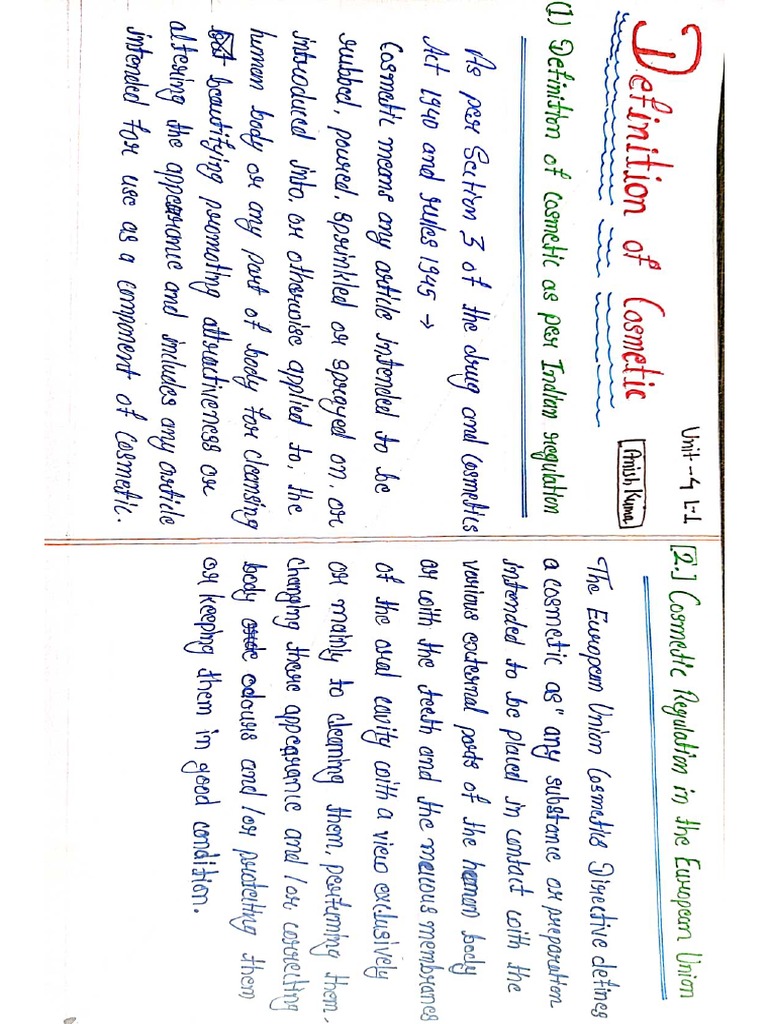 Unit-4 L-1
Definition of Cosmetic
Anish Kumar
(1) Definition of cosmetic as per Indian regulation
As per Section 3 of the drug and cosmetics
Act 1940 and rules 1945 →
Cosmetic means any article intended to be
rubbed, poured, sprinkled or sprayed on, or
introduced into, or otherwise applied to, the
human body or any part of body for cleansing
beautifying promoting attractiveness or
altering the appearanic and includes any article
intended for use as a component of cosmetic.
[2.] Cosmetic Regulation in the European Union
The European Union Cosmetics Directive defines
a cosmetic as " any substance or preparation
intended to be placed in contact with the
various external parts of the human body
or with the teeth and the mucous membranes
of the oral cavity with a view exclusively
or mainly to cleaning them, perfuming them,
changing there appearanic and/or correcting
body odours and/or protecting them
or keeping them in good condition.